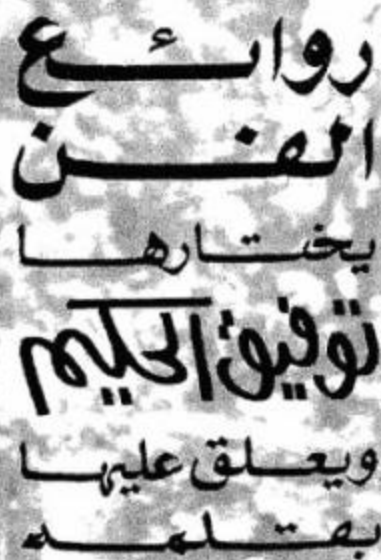 روائع
الفن
يختارها
توفيق الحكيم
ويعلق عليها
بقلمه